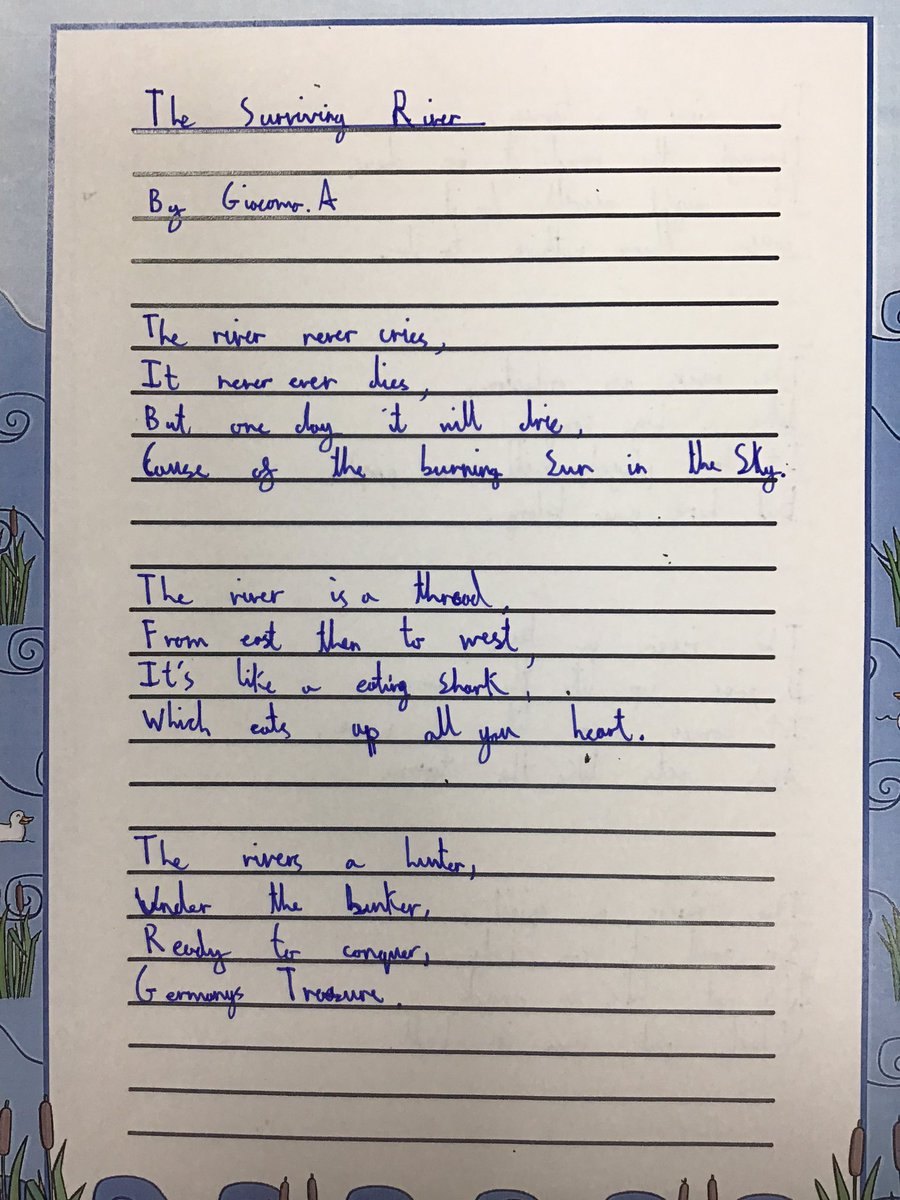 The Surviving River
By Giacomo. A
The river never cries,
It never ever dies,
But, one day it will drie,
Cause of the burning Sun in the Sky.
The river is a thread,
From east then to west,
It's like a eating shark,
Which eats up all you heart.
The rivers a hunter,
Under the bunker,
Ready to conquer,
Germanys Treasure.